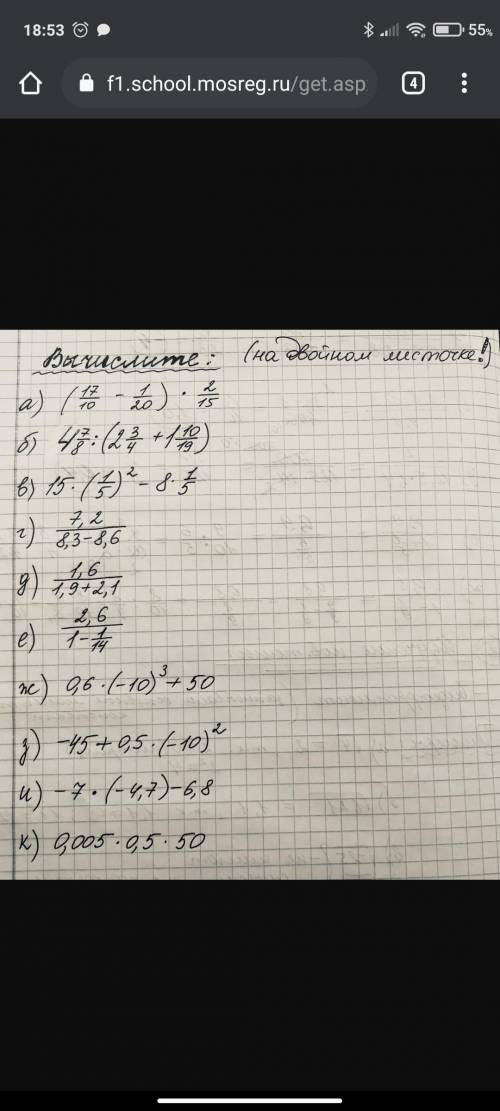 18:53 55%
f1.school.mosreg.ru/get.asp 4
Вычислите: (на двойном листочке!)
а) (17/10 - 1/20) · 2/15
б) 4 7/8 : (2 3/4 + 1 10/19)
в) 15 · (1/5)² - 8 · 1/5
г) 7,2/(8,3-8,6)
д) 1,6/(1,9+2,1)
е) 2,6/(1-1/14)
ж) 0,6 · (-10)³ + 50
з) -45 + 0,5 · (-10)²
и) -7 · (-4,7) - 6,8
к) 0,005 · 0,5 · 50